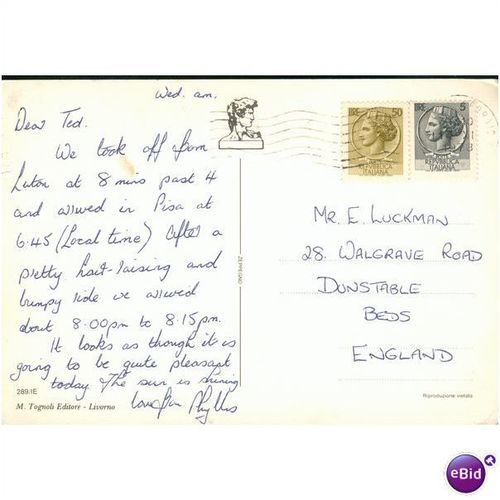 Wed. am.
Dear Ted.
We took off from
Luton at 8 mins past 4
and arrived in Pisa at
6.45 (Local time) After a
pretty hair-raising and
bumpy ride we arrived
about 8.00pm to 8.15pm.
It looks as though it is
going to be quite pleasant
today & the sun is shining
love from Phyllis
289/IE
M. Tognoli Editore - Livorno
ZEPPEGNO
50
REPVBBLICA
ITALIANA
REPVBBLICA
ITALIANA
MR. E. LUCKMAN
28. WALGRAVE ROAD
DUNSTABLE
BEDS
ENGLAND
Riproduzione vietata
eBid